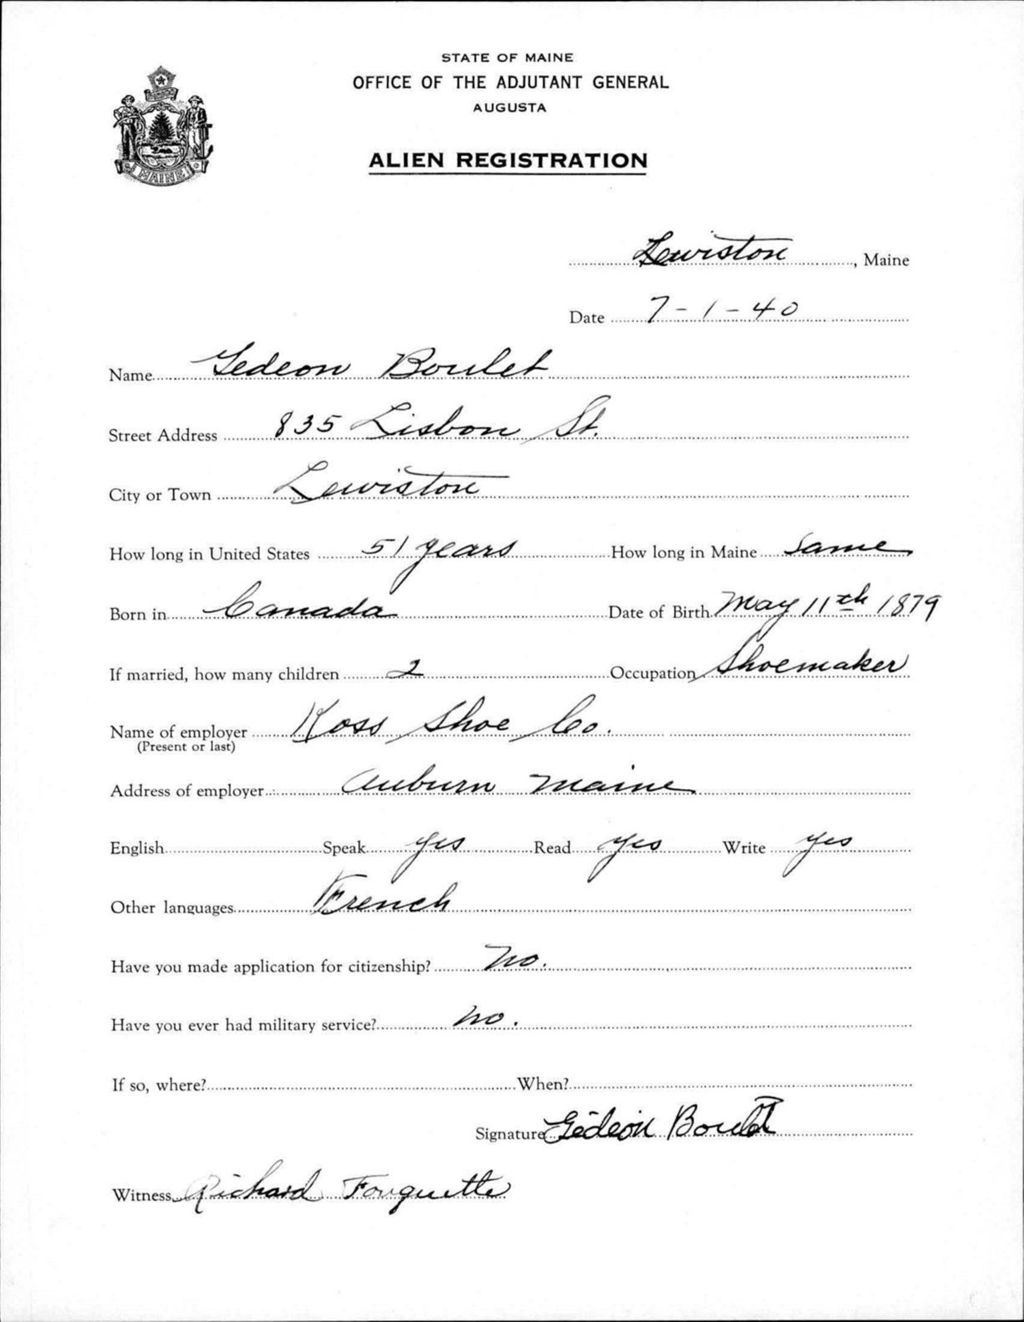 STATE OF MAINE
OFFICE OF THE ADJUTANT GENERAL
AUGUSTA
MAINE
ALIEN REGISTRATION
Lewiston, Maine
Date 7-1-40
Name Gedeon Boulet
Street Address 835 Lisbon St.
City or Town Lewiston
How long in United States 51 years How long in Maine Same
Born in Canada Date of Birth May 11th 1879
If married, how many children 2 Occupation Shoemaker
Name of employer Koss Shoe Co.
(Present or last)
Address of employer Auburn Maine
English Speak yes Read yes Write yes
Other languages French
Have you made application for citizenship? No.
Have you ever had military service? no.
If so, where? When?
Signature Gédéon Boulet
Witness Richard Fouquette